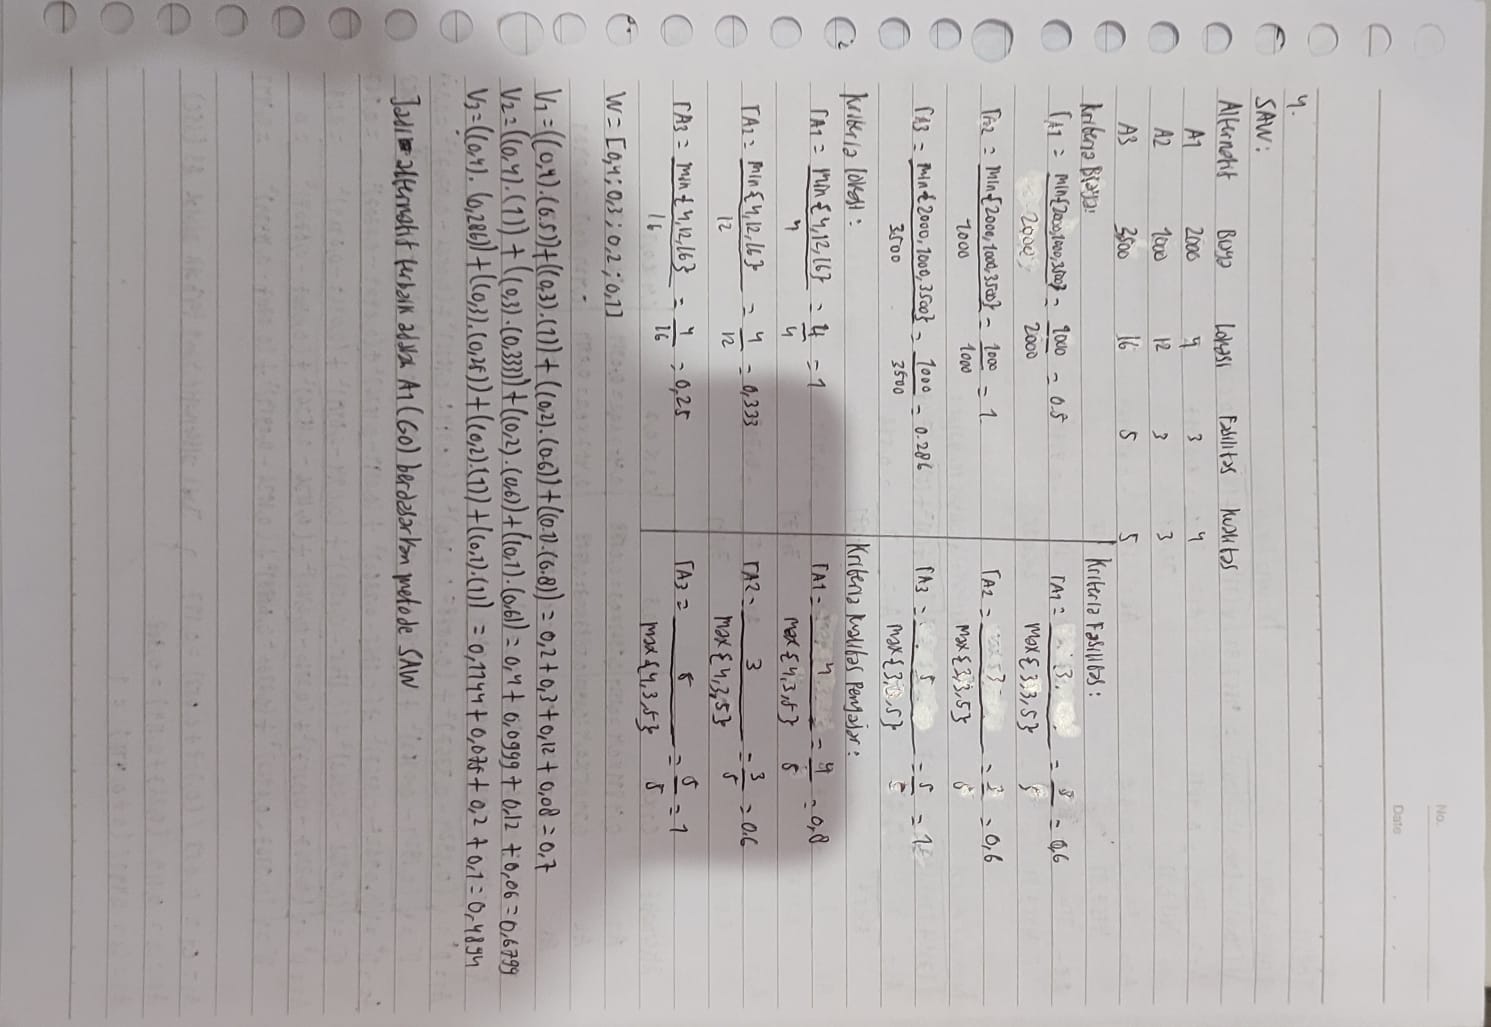 No.
Date
4.
SAW:
Alternatif Biaya Lokasi Fasilitas Kualitas
A1 2000 4 3 4
A2 1000 12 3 3
A3 3500 16 5 5
Kriteria Biaya:
rA1 = min{2000,1000,3500} / 2000 = 1000 / 2000 = 0.5
rA2 = min{2000,1000,3500} / 1000 = 1000 / 1000 = 1
rA3 = min{2000,1000,3500} / 3500 = 1000 / 3500 = 0.286
Kriteria lokasi:
rA1 = min{4,12,16} / 4 = 4 / 4 = 1
rA2 = min{4,12,16} / 12 = 4 / 12 = 0,333
rA3 = min{4,12,16} / 16 = 4 / 16 = 0,25
Kriteria Fasilitas:
rA1 = 3 / max{3,3,5} = 3 / 5 = 0,6
rA2 = 3 / max{3,3,5} = 3 / 5 = 0,6
rA3 = 5 / max{3,3,5} = 5 / 5 = 1
Kriteria Kualitas Pengajar:
rA1 = 4 / max{4,3,5} = 4 / 5 = 0,8
rA2 = 3 / max{4,3,5} = 3 / 5 = 0.6
rA3 = 5 / max{4,3,5} = 5 / 5 = 1
W = [0,4 ; 0,3 ; 0,2 ; 0,1]
V1 = ((0,4).(0.5)) + ((0,3).(1)) + ((0,2).(0.6)) + ((0.1).(0.8)) = 0,2 + 0,3 + 0,12 + 0,08 = 0,7
V2 = ((0,4).(1)) + ((0,3).(0,333)) + ((0,2).(0,6)) + ((0,1).(0,6)) = 0,4 + 0,0999 + 0,12 + 0,06 = 0,6799
V3 = ((0,4).(0,286)) + ((0,3).(0,25)) + ((0,2).(1)) + ((0,1).(1)) = 0,1144 + 0,075 + 0,2 + 0,1 = 0,4894
Jadi alternatif terbaik adalah A1 (GO) berdasarkan metode SAW